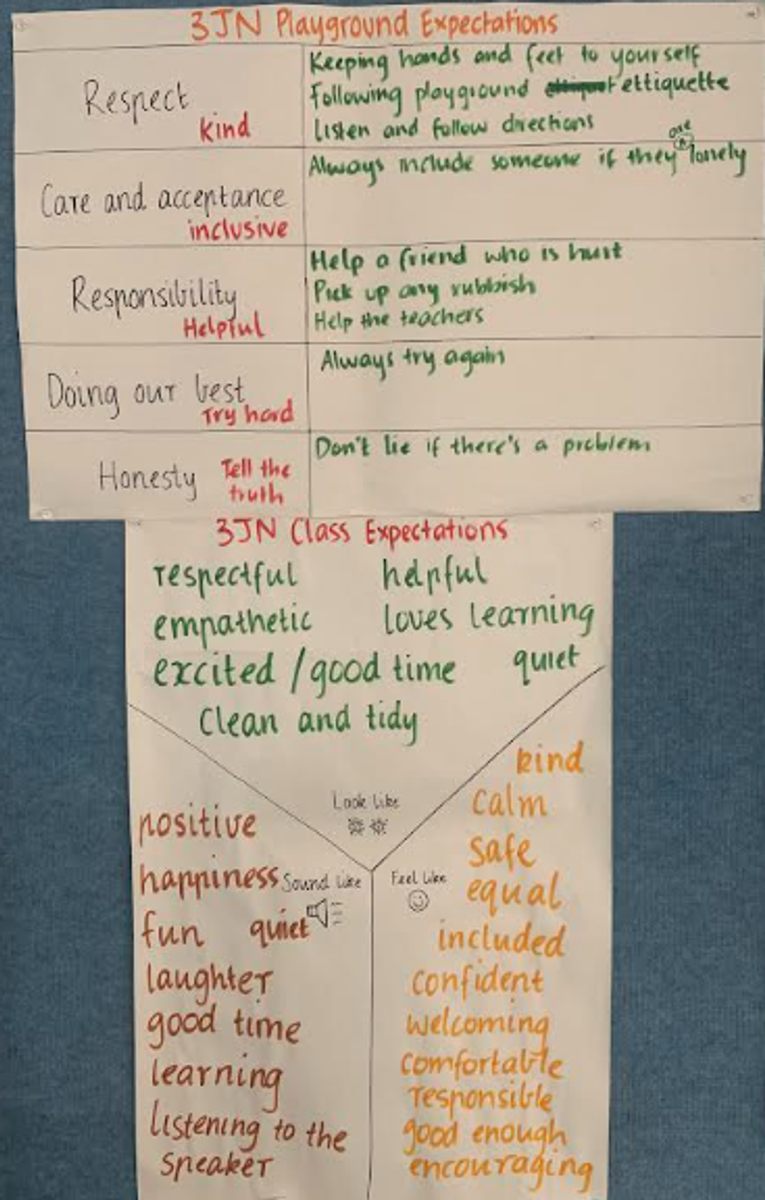 3JN Playground Expectations
Respect
kind
Keeping hands and feet to yourself
Following playground ettiquette
Listen and follow directions
Care and acceptance
inclusive
Always include someone if they are lonely
Responsibility
Helpful
Help a friend who is hurt
Pick up any rubbish
Help the teachers
Doing our best
Try hard
Always try again
Honesty
Tell the
truth
Don't lie if there's a problem
3JN Class Expectations
respectful helpful
empathetic loves learning
excited / good time quiet
Clean and tidy
Look like
Sound like
positive
happiness
fun quiet
laughter
good time
learning
listening to the
speaker
Feel like
kind
calm
safe
equal
included
confident
welcoming
comfortable
responsible
good enough
encouraging